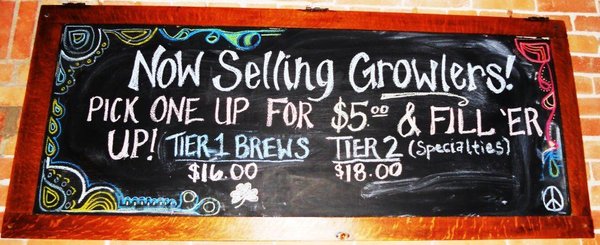 Now Selling Growlers!
PICK ONE UP FOR $5.00 & FILL 'ER
UP! TIER 1 BREWS TIER 2 (Specialties)
$16.00 $18.00